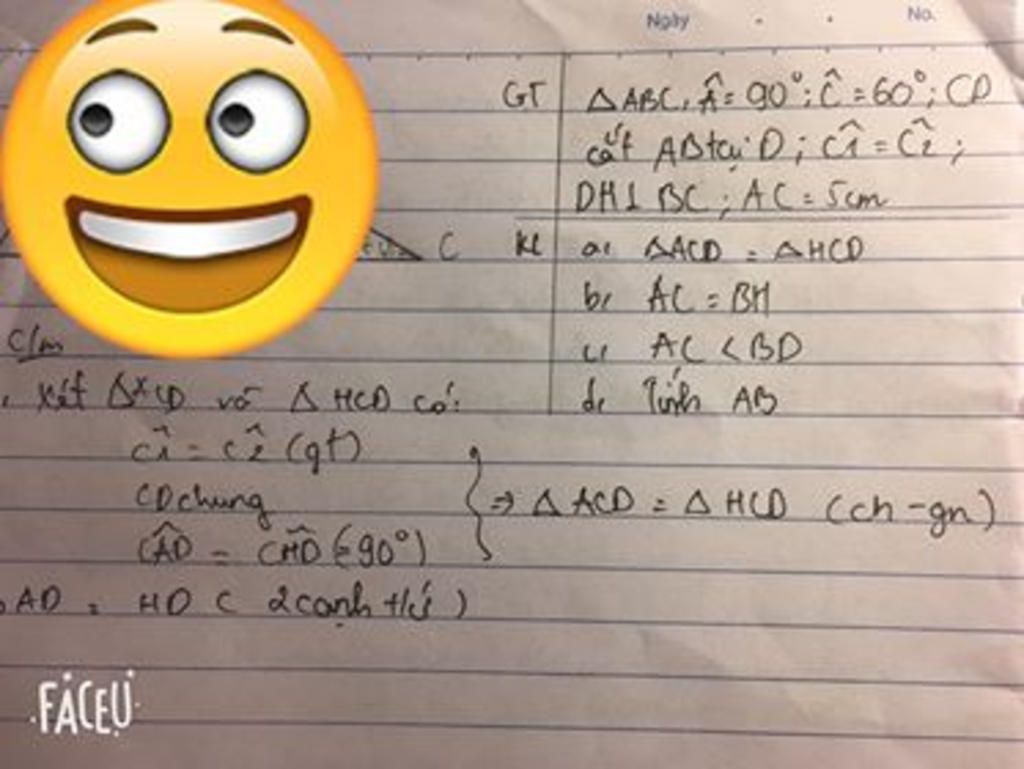 Ngày . . No.
GT ΔABC, Â = 90°; Ĉ = 60°; CD
cắt AB tại D; Ĉ1 = Ĉ2;
DH⊥BC; AC = 5cm
C
KL a, ΔACD = ΔHCD
b, AC = BH
c, AC < BD
d, Tính AB
C/m
Xét ΔACD và ΔHCD có:
Ĉ1 = Ĉ2 (gt)
CD chung
CÂD = CĤD (=90°)
} => ΔACD = ΔHCD (ch-gn)
AD = HD ( 2 cạnh t/ứ )
FACEU